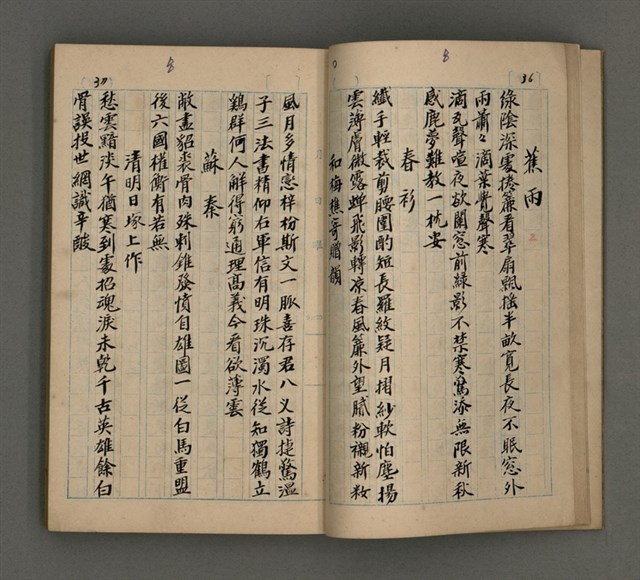 36
8
蕉雨
綠陰深處捲簾看翠扇飄搖半畝寬長夜不眠窓外
雨蕭々滴葉覺聲寒
滴瓦聲喧夜欲闌窓前綠影不禁寒驚添無限新秋
感鹿夢難教一枕安
春衫
纖手輕裁剪腰圍酌短長羅紋疑月摺紗軟怕塵揚
雲薄膚微露蟬飛影轉凉春風簾外望膩粉襯新妝
和梅樵寄贈韻
8
37
風月多情戀梓枌斯文一脈喜存君八义詩捷驚溫
子三法書精仰右軍信有明珠沉濁水從知獨鶴立
鷄群何人解得窮通理高義今看欲薄雲
蘇秦
敝盡貂裘骨肉殊刺錐發憤自雄圖一從白馬重盟
後六國權衡有若無
清明日塚上作
愁雲黯淡午猶寒到處招魂淚未乾千古英雄餘白
骨誤投世網識辛酸